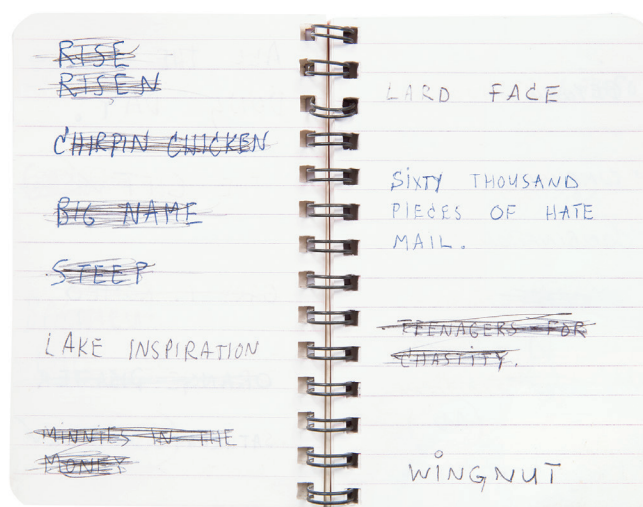 RISE
RISEN
CHIRPIN CHICKEN
BIG NAME
STEEP
LAKE INSPIRATION
MINNIES IN THE
MONEY
LARD FACE
SIXTY THOUSAND
PIECES OF HATE
MAIL.
TEENAGERS FOR
CHASTITY.
WINGNUT